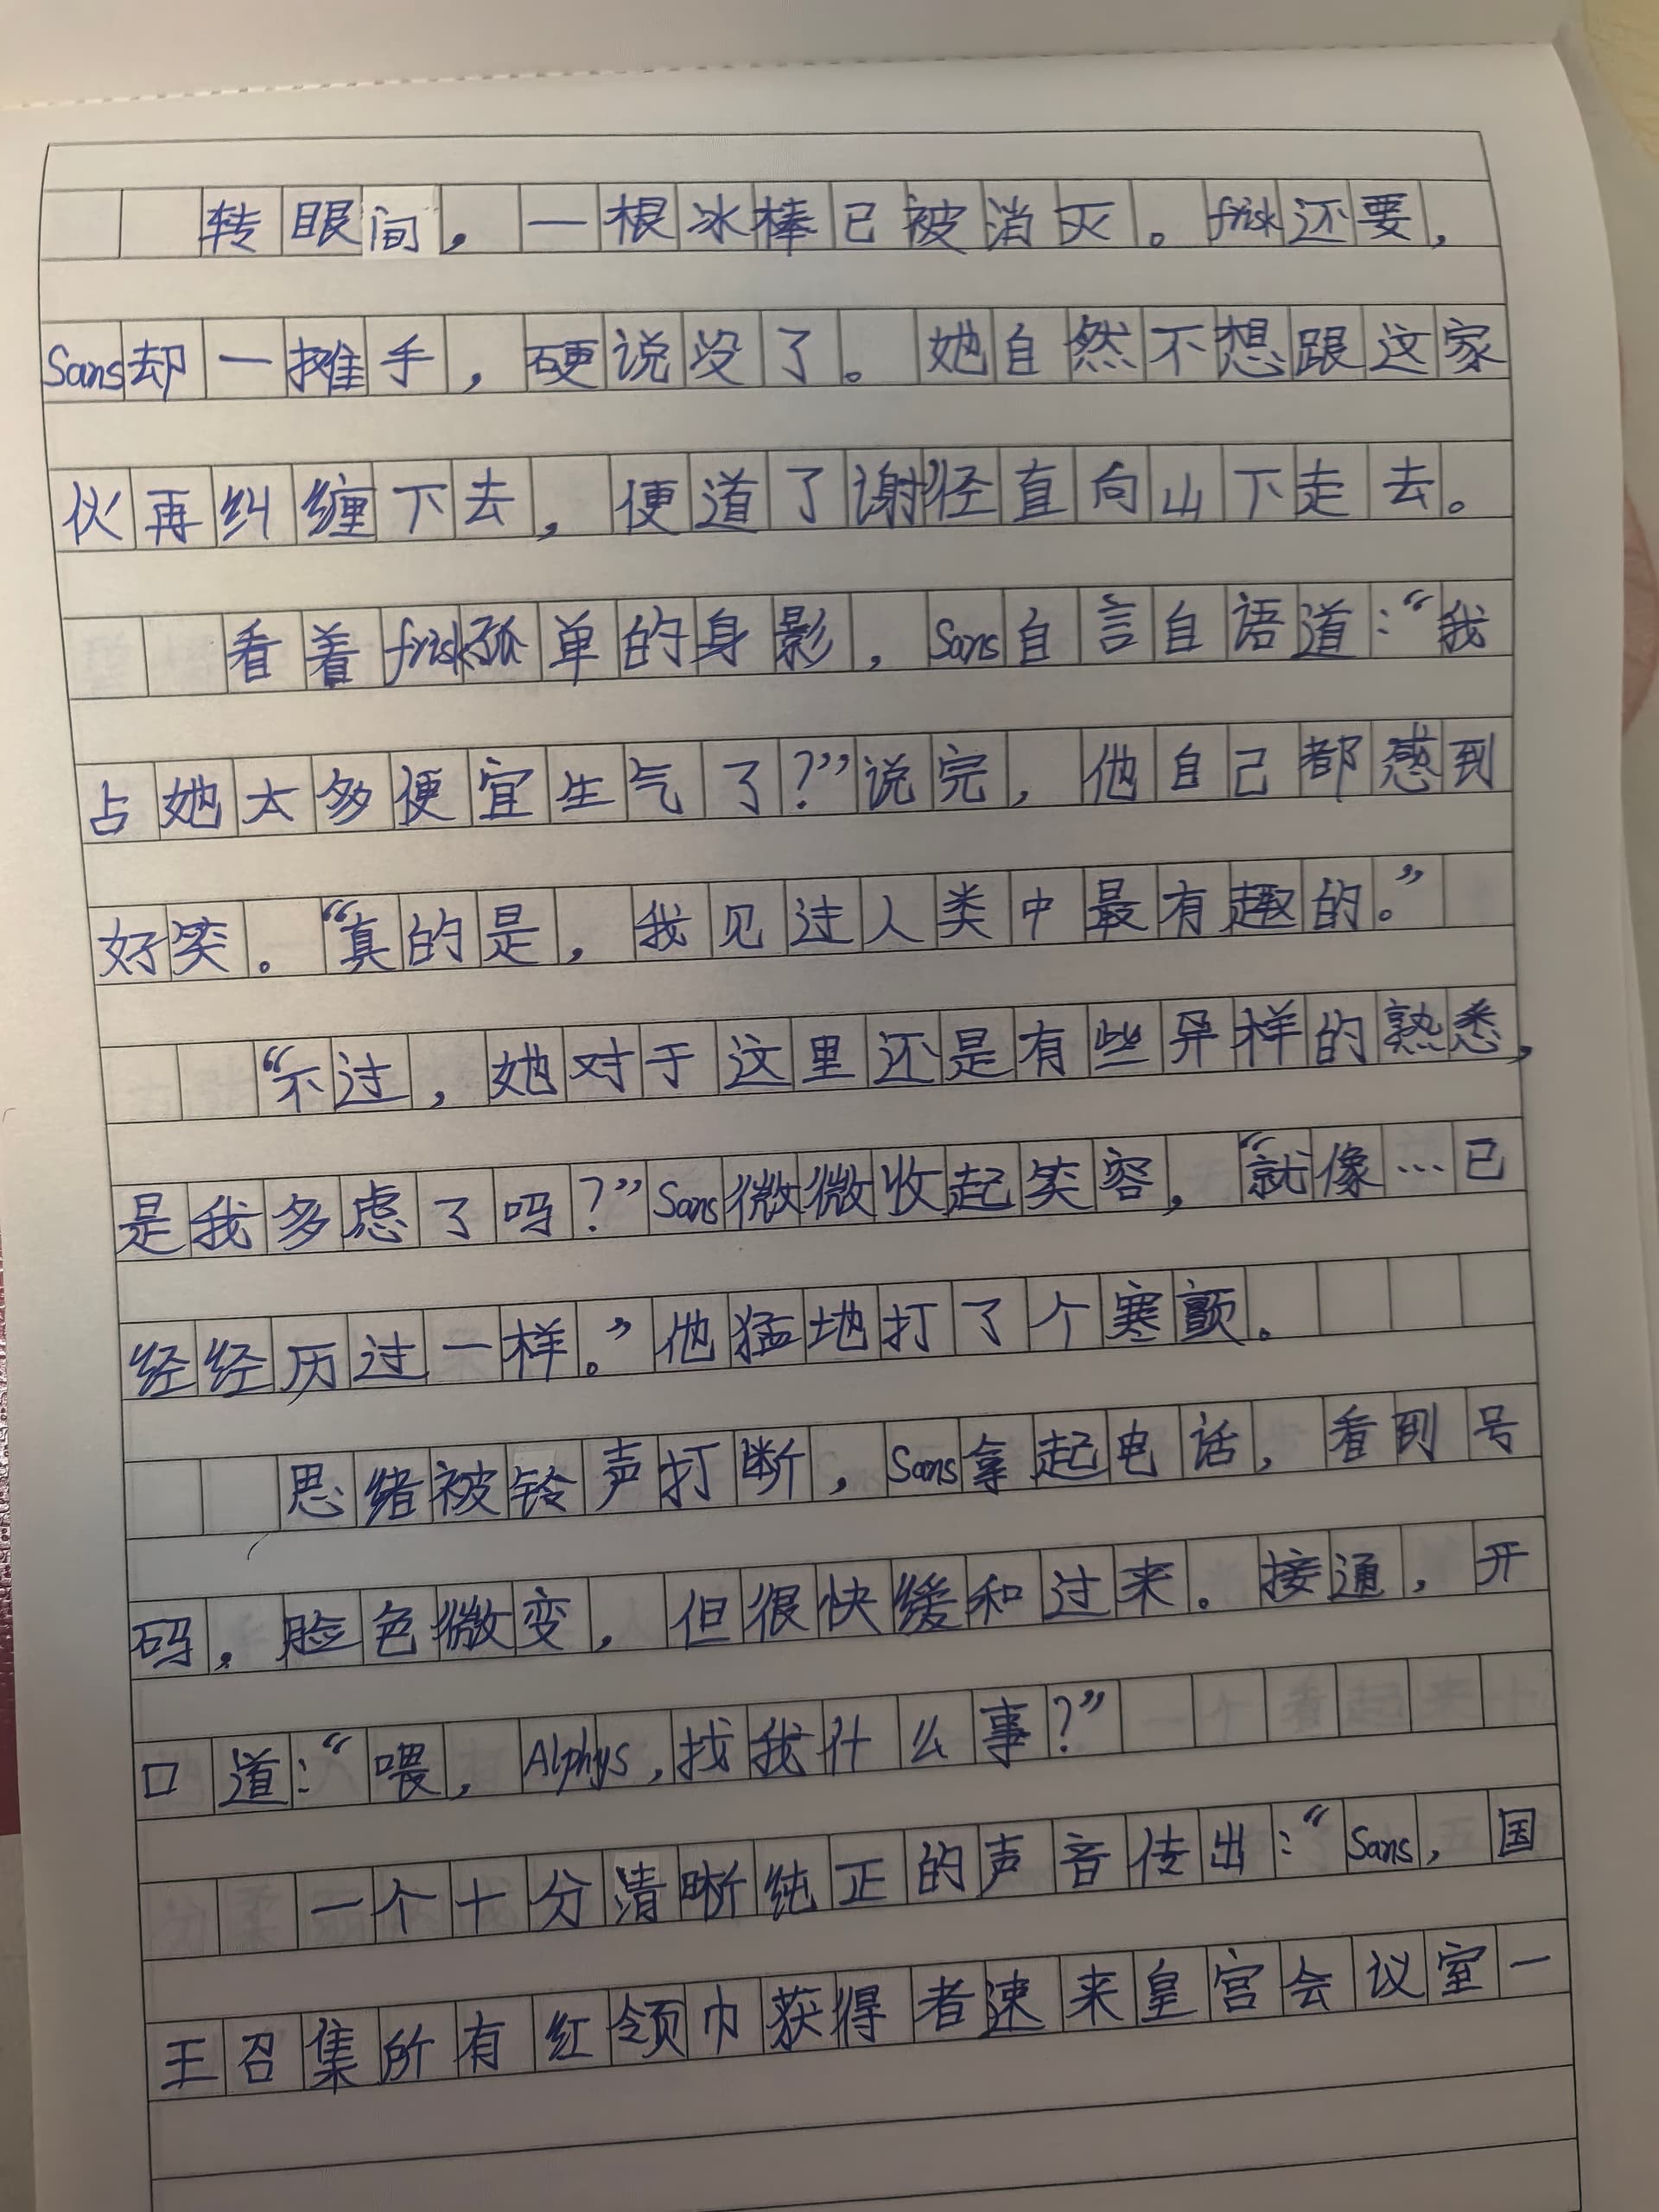 转眼间，一根冰棒已被消灭。frisk还要，
Sans却一摊手，硬说没了。她自然不想跟这家
伙再纠缠下去，便道了谢径直向山下走去。
看着frisk孤单的身影，Sans自言自语道：“我
占她太多便宜生气了？”说完，他自己都感到
好笑。“真的是，我见过人类中最有趣的。”
“不过，她对于这里还是有些异样的熟悉，
是我多虑了吗？”Sans微微收起笑容，“就像…已
经经历过一样。”他猛地打了个寒颤。
思绪被铃声打断，Sans拿起电话，看到号
码，脸色微变，但很快缓和过来。接通，开
口道：“喂，Alphys，找我什么事？”
一个十分清晰纯正的声音传出：“Sans，国
王召集所有红领巾获得者速来皇宫会议室一